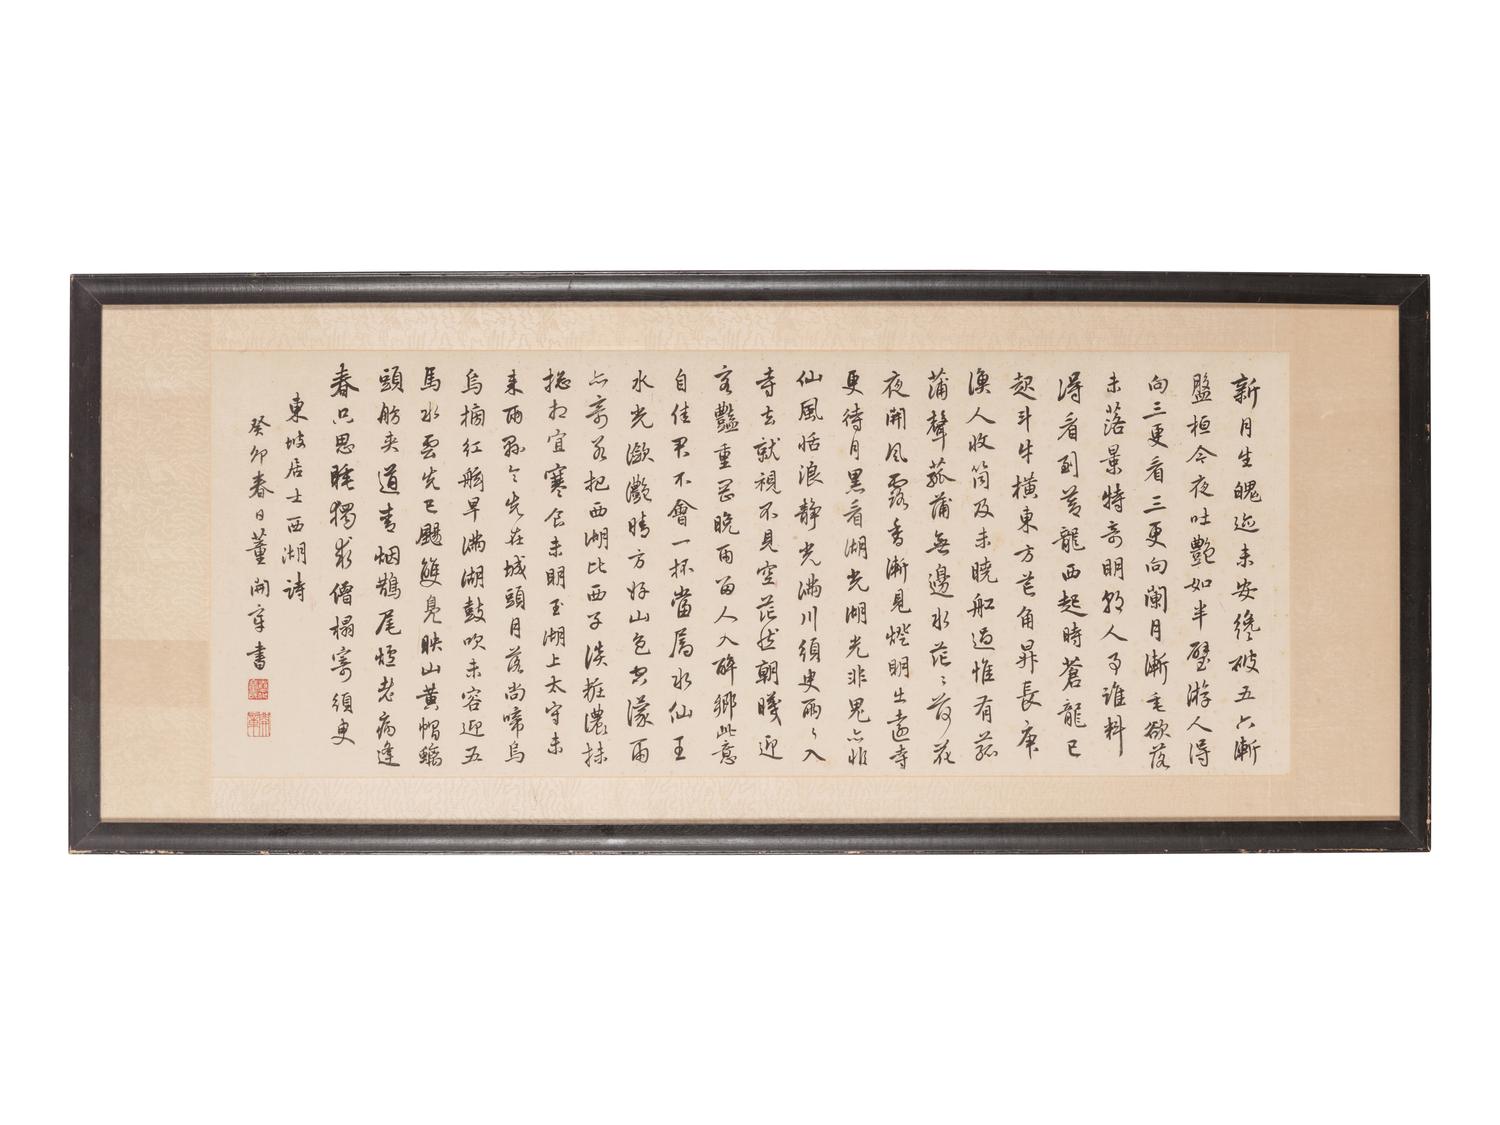 新月生魄迹未安纔破五六漸
盤桓今夜吐艷如半璧游人得
向三更看三更向闌月漸垂欲落
未落景特奇明朝人事誰料
得看到蒼龍西起時蒼龍已
起斗牛橫東方芒角昇長庚
漁人收筒及未曉船過惟有菰
蒲聲菰蒲無邊水茫茫荷花
夜開風露香漸見燈明出遠寺
更待月黑看湖光湖光非鬼亦非
仙風恬浪静光滿川須臾兩兩入
寺去就視不見空茫然朝曦迎
客豔重岡晚雨留人入醉鄉此意
自佳君不會一杯當屬水仙王
水光瀲灧晴方好山色空濛雨
亦奇若把西湖比西子淡粧濃抹
總相宜寒食未明至湖上太守未
來兩縣令先在城頭月落尚啼烏
烏榜紅舷早滿湖鼓吹未容迎五
馬水雲先已颺雙鳧映山黃帽螭
頭舫夾道青烟鵲尾爐老病逢
春只思睡獨求僧榻寄須臾
東坡居士西湖詩
癸卯春日董開章書